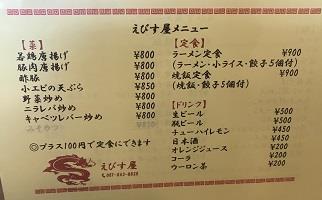 えびす屋メニュー
【菜】
若鶏唐揚げ ¥800
豚肉唐揚げ ¥800
酢豚 ¥800
小エビの天ぷら ¥850
野菜炒め ¥800
ニラレバ炒め ¥800
キャベツレバー炒め ¥800
◎プラス100円で定食にできます
えびす屋
【定食】
ラーメン定食 ¥900
(ラーメン・小ライス・餃子5個付)
焼飯定食 ¥900
(焼飯・餃子5個付)
【ドリンク】
生ビール ¥500
瓶ビール ¥500
チューハイレモン ¥450
日本酒 ¥450
オレンジジュース ¥200
コーラ ¥200
ウーロン茶 ¥200